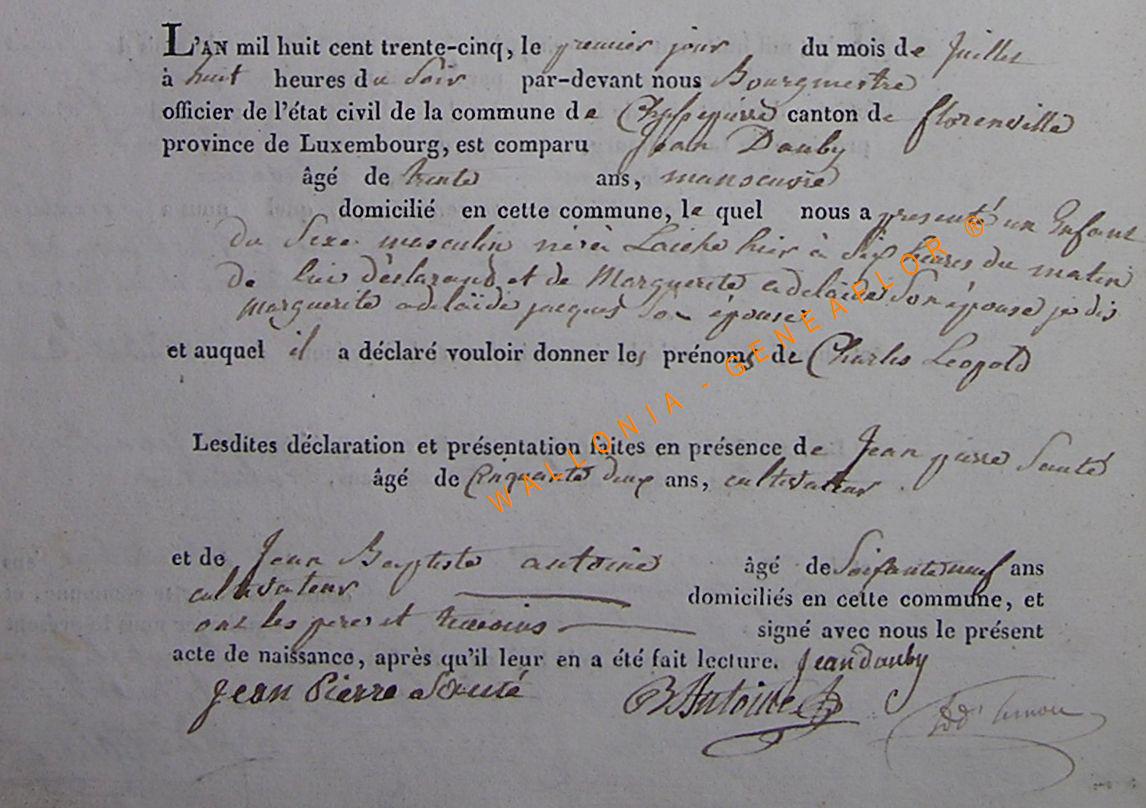 L'AN mil huit cent trente-cinq, le premier jour du mois de Juillet
à huit heures du Soir par-devant nous Bourgmestre
officier de l'état civil de la commune de canton de florenville
province de Luxembourg, est comparu Jean Dauby
âgé de trente ans, manoeuvre
domicilié en cette commune, le quel nous a presenté un Enfant
du Sexe masculin né à hier à Six heures du matin
de lui déclarand et de Marguerite adelaide Son épouse je dis
Marguerite adelaïde jacques Son épouse
et auquel il a déclaré vouloir donner les prénoms de Charles Leopold
Lesdites déclaration et présentation faites en présence de Jean pierre Santé
âgé de Cinquante deux ans, cultivateur
et de Jean Baptiste antoine âgé de Soixante neuf ans
cultivateur domiciliés en cette commune, et
ont les peres et temoins signé avec nous le présent
acte de naissance, après qu'il leur en a été fait lecture. Jean dauby
Jean Pierre Santé B Antoine
WALLONIA - GENEAFLOR ®